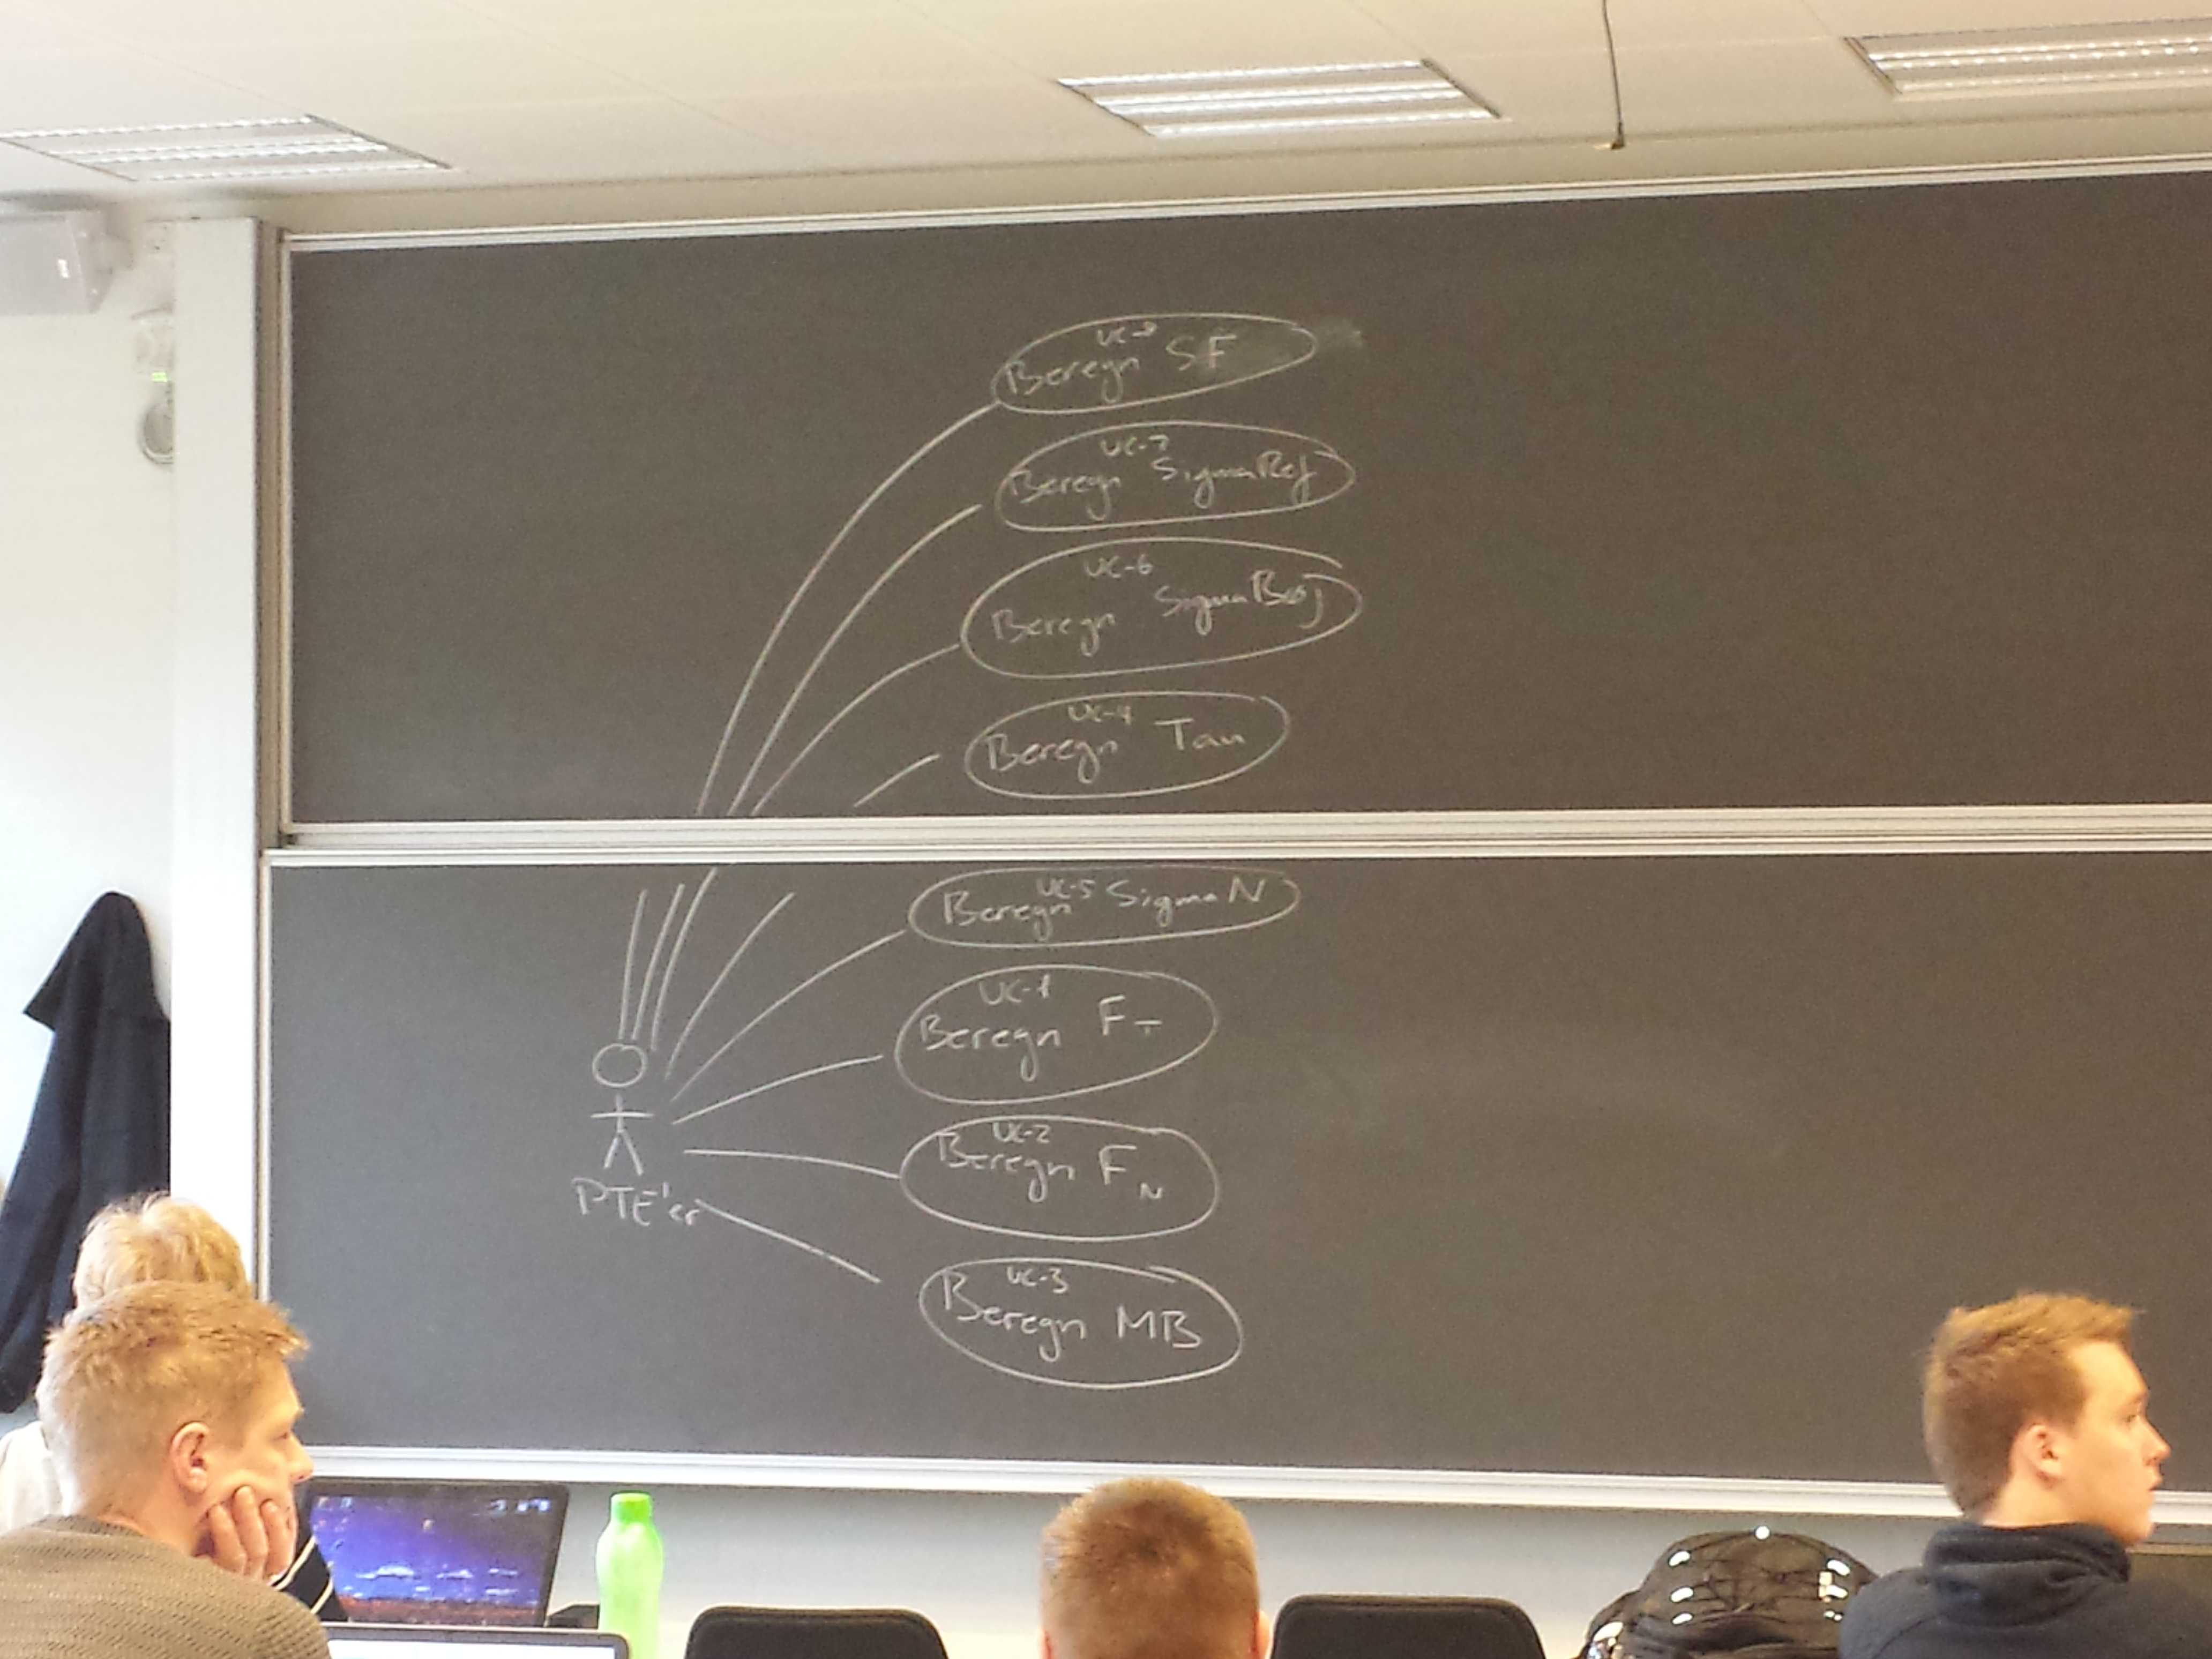 UC-8
Beregn SF
UC-7
Beregn SigmaRef
UC-6
Beregn SigmaBøj
UC-4
Beregn Tau
UC-5
Beregn SigmaN
UC-1
Beregn FT
UC-2
Beregn FN
UC-3
Beregn MB
PTE'er